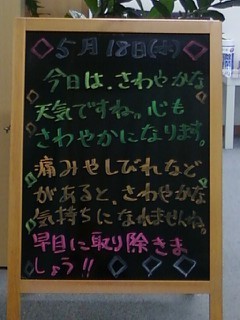 5月18日(水)
今日は、さわやかな
天気ですね。心も
さわやかになります。
痛みやしびれなど
があると、さわやかな
気持ちになれませんね。
早目に取り除きま
しょう!!